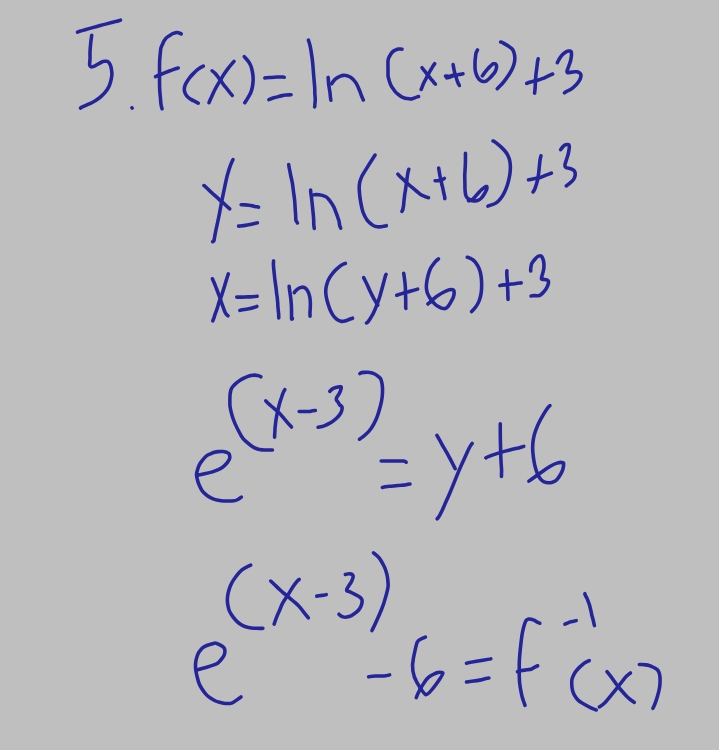 5. f(x)=ln(x+6)+3
y=ln(x+6)+3
x=ln(y+6)+3
e^(x-3)=y+6
e^(x-3)-6=f^-1(x)